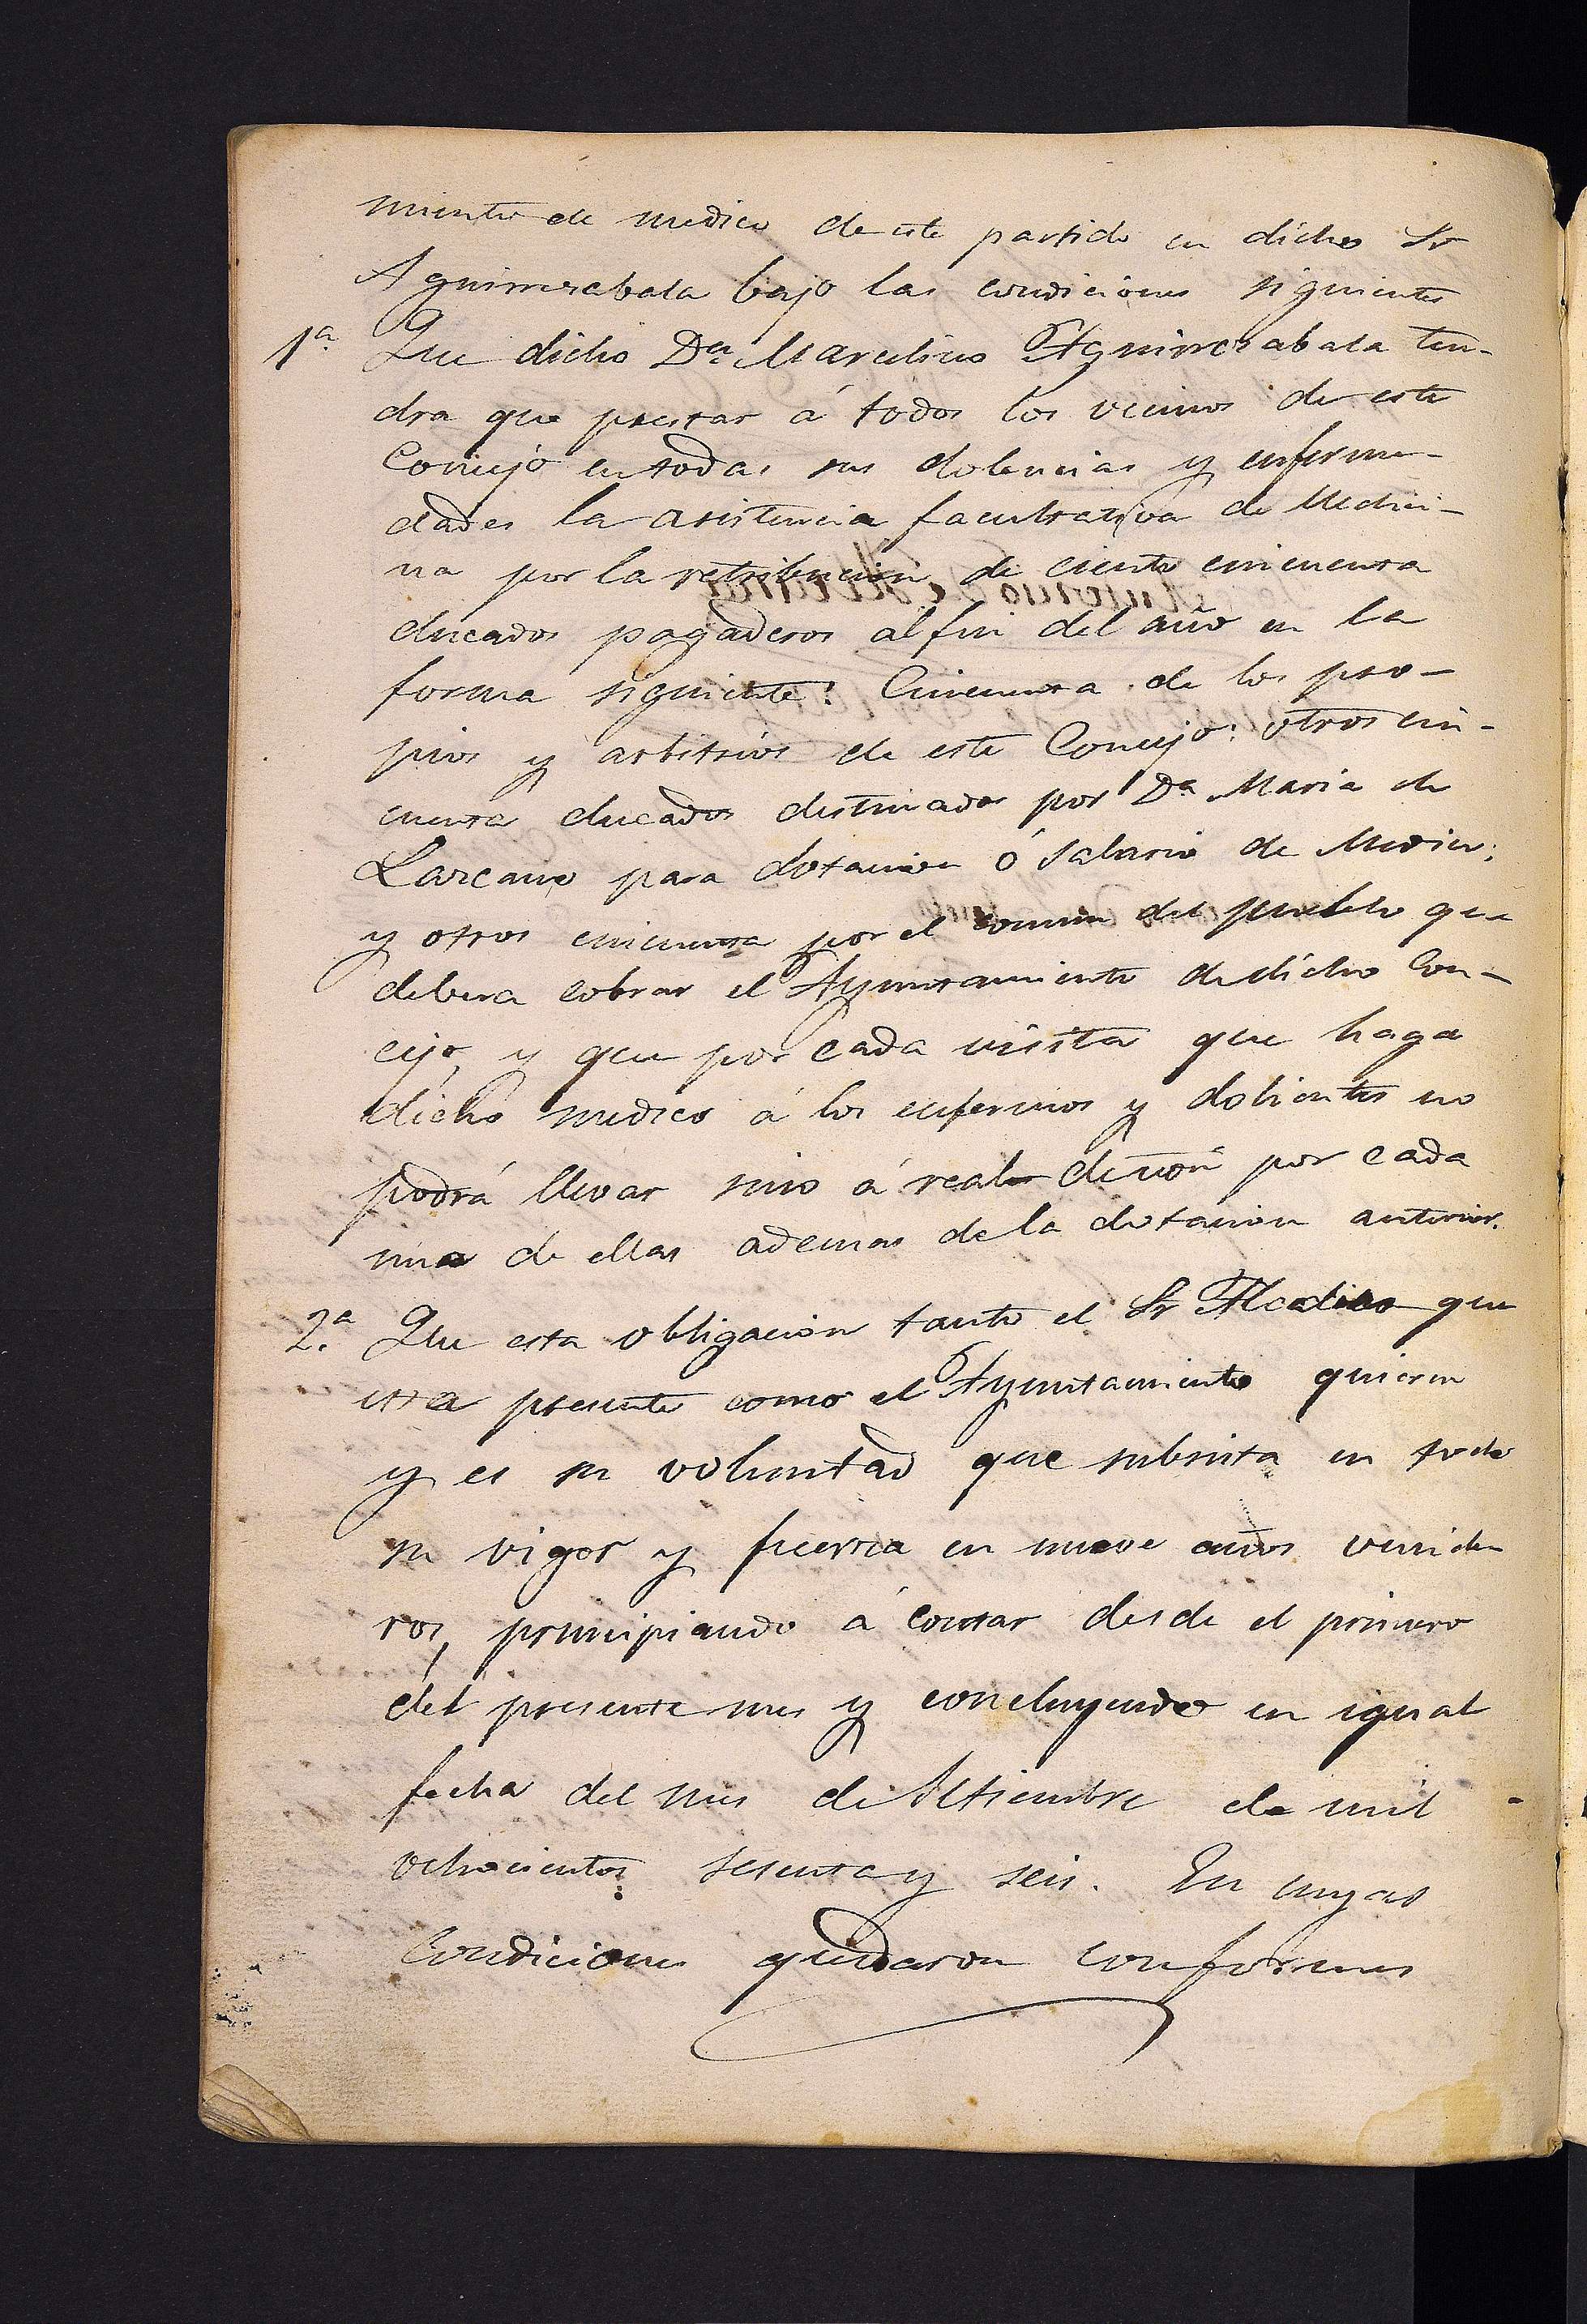 miento de medico de este partido en dicho Sr
Aguirrezabala bajo las condiciones siguientes
1ª Que dicho Dn Marcelino Aguirrezabala ten-
dra que prestar á todos los vecinos de este
Concejo en todas sus dolencias y enferme-
dades la asistencia facultativa de Medici-
na por la retribucion de ciento cincuenta
ducados pagaderos al fin del año en la
forma siguiente: Cincuenta de los pro-
pios y arbitrios de este Concejo: otros cin-
cuenta ducados destinados por Dª Maria de
Lazcano para dotacion ó salario de Medico;
y otros cincuenta por el comun del pueblo que
debera cobrar el Ayuntamiento de dicho Con-
cejo, y que por cada visita que haga
dicho medico á los enfermos y dolientes no
podrá llevar sino á real de von por cada
una de ellas ademas de la dotacion anterior.
2ª Que esta obligacion tanto el Sr Medico que
esta presente como el Ayuntamiento quieren
y es su voluntad que subsista en todo
su vigor y fuerza en nueve años venide
ros, principiando á contar desde el primero
del presente mes y concluyendo en igual
fecha del mes de Setiembre de mil
ochocientos sesenta y seis. En cuyas
Condiciones quedaron conformes